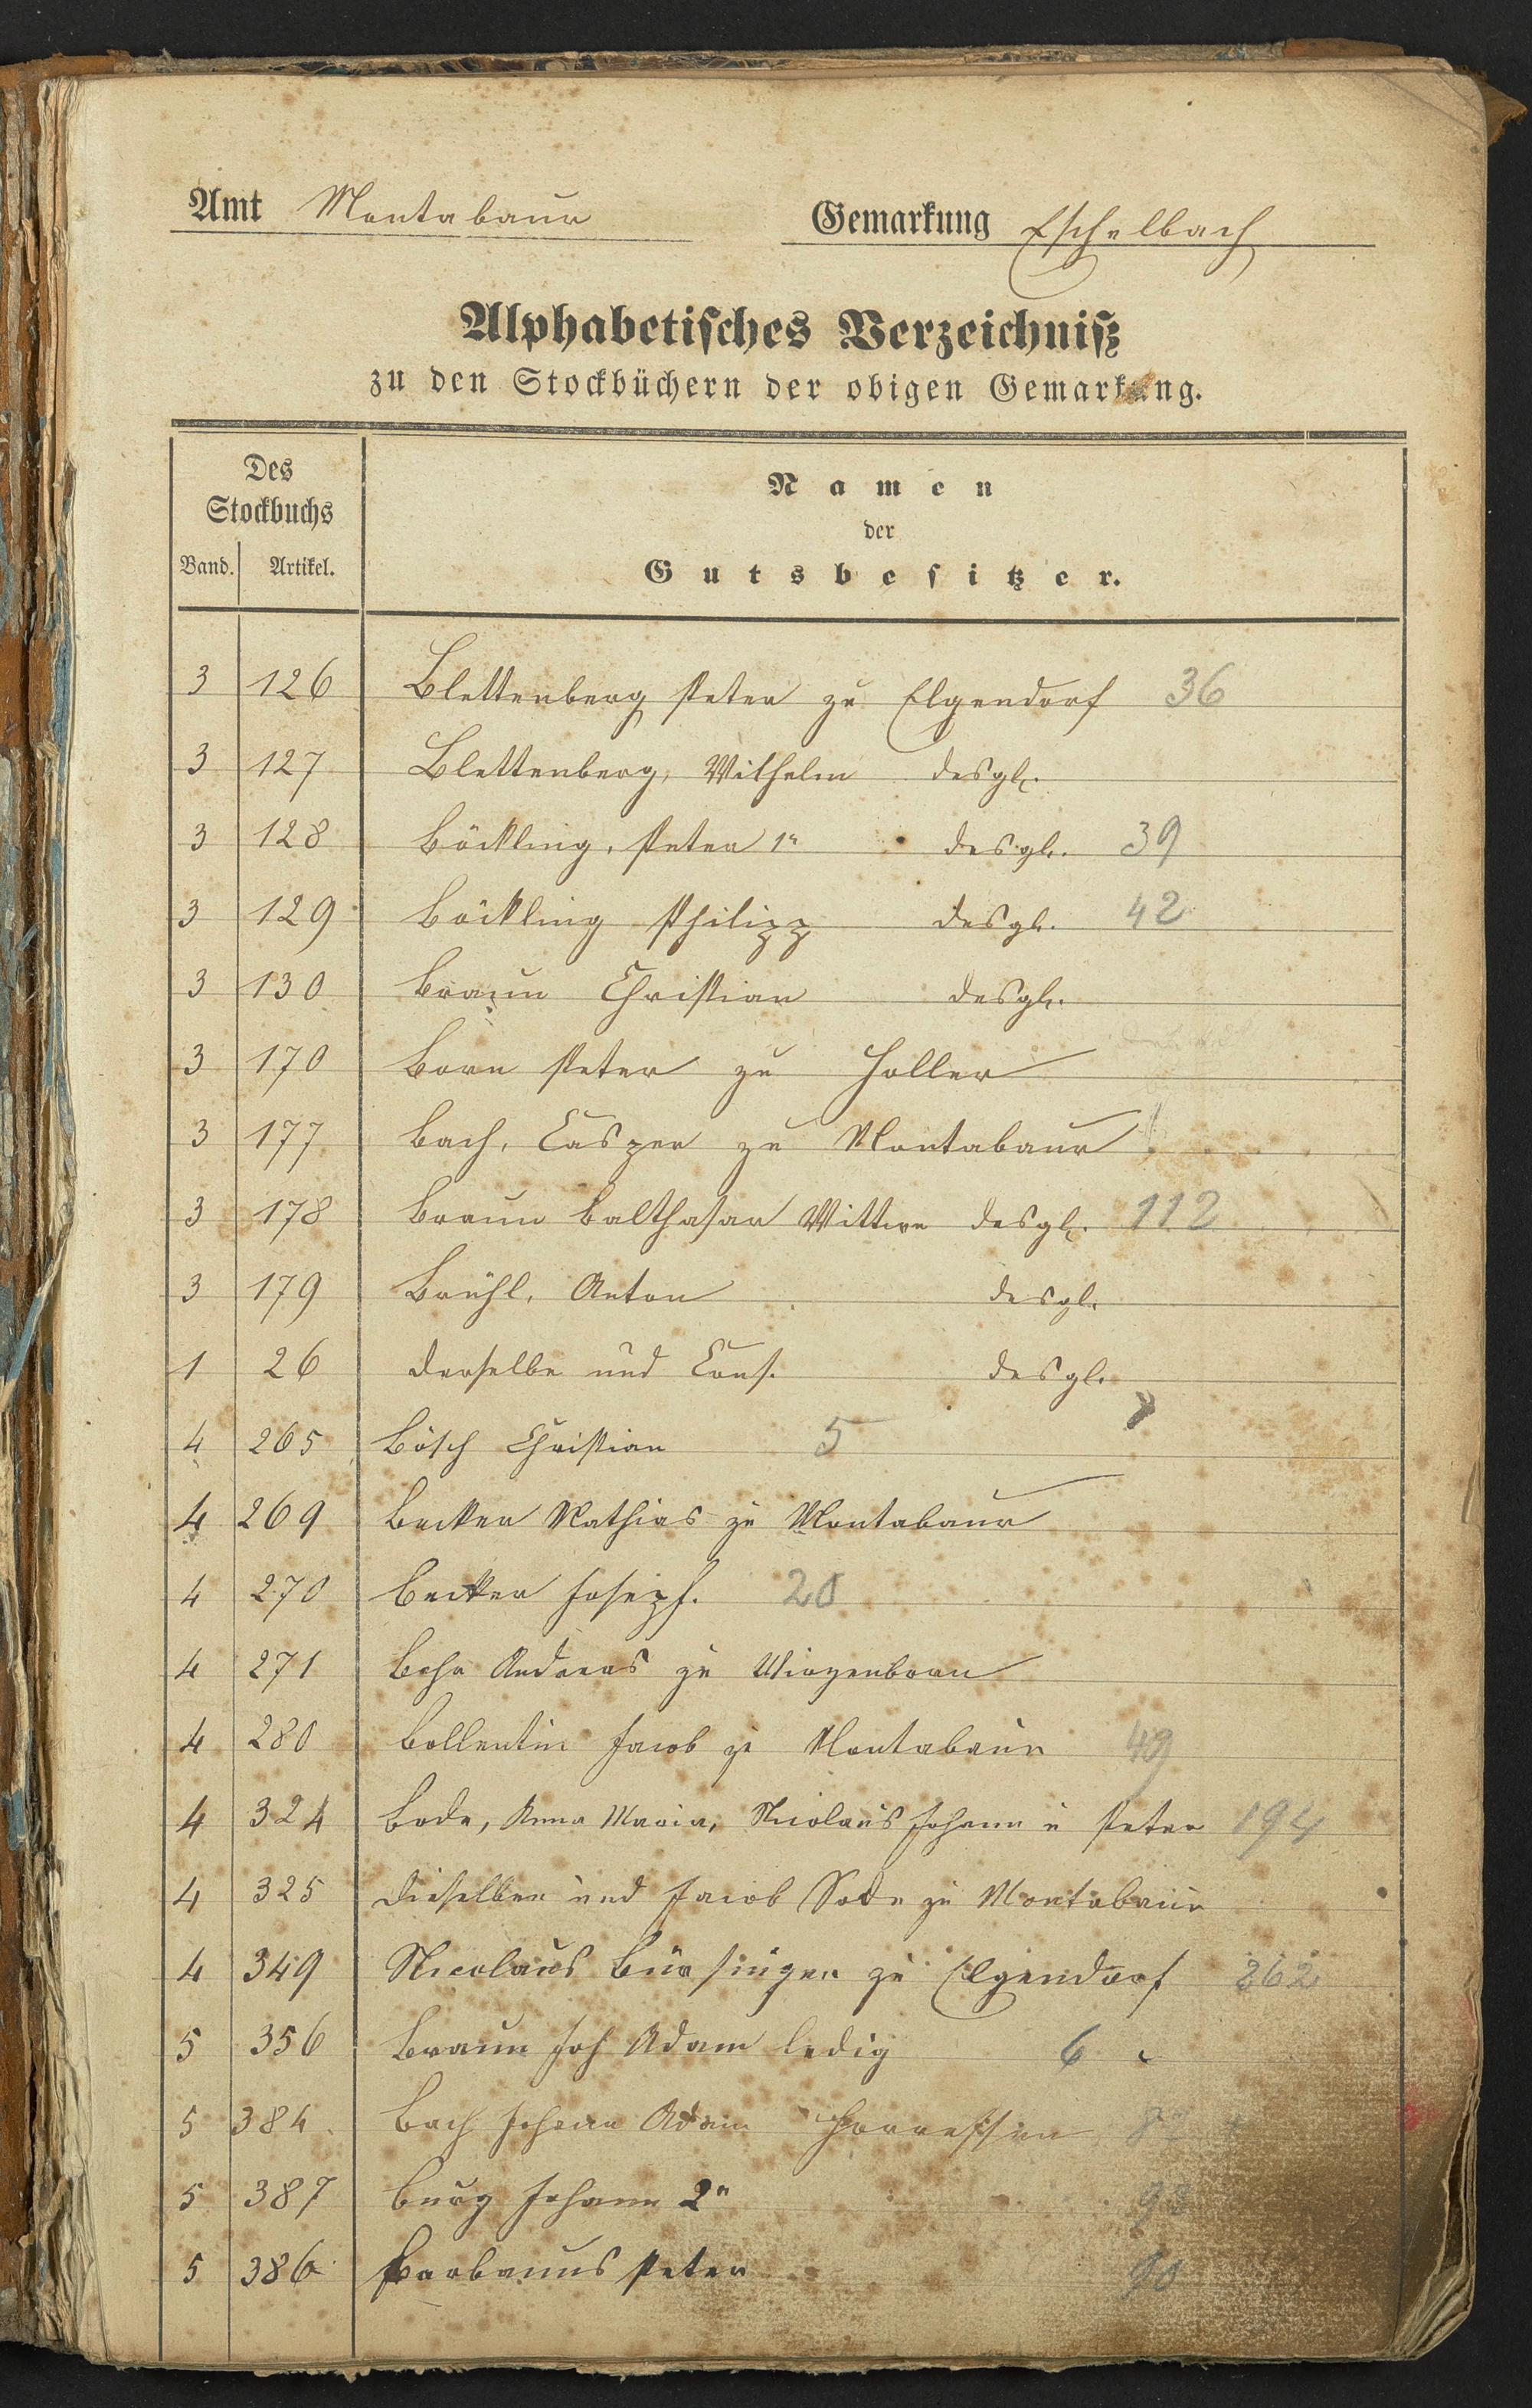 Amt Montabaur Gemarkung Eschelbach
Alphabetisches Verzeichniß
zu den Stockbüchern der obigen Gemarkung.
Des Stockbuchs
Namen
der
Band. Artikel. Gutsbesitzer.
3 126 Blettenberg Peter zu Elgendorf 36
3 127 Blettenberg, Wilhelm desgl.
3 128 Böckling, Peter 1r desgl. 39
3 129 Böckling Philipp desgl. 42
3 130 Braun Christian desgl.
3 170 Born Peter zu Holler
3 177 Bach, Casper zu Montabaur
3 178 Braun Balthasar Wittwe desgl. 112
3 179 Brühl, Anton desgl.
1 26 derselbe und Cons. desgl.
4 265 Bösch Christian 5
4 269 Becker Mathias zu Montabaur
4 270 Becker Joseph. 20
4 271 Behr Andreas zu Wirzenborn
4 280 Bollentin Jacob zu Montabaur 49
4 324 Bode, Anna Maria, Nicolaus Johann u Peter 194
4 325 Dieselben und Jacob Bode zu Montabaur
4 349 Nicolaus zu Elgendorf 262
5 356 Braun Joh Adam ledig 6
5 384 Bach Johann Adam Horressen
5 387 Burg Johann 2r 93
5 386 Peter 90